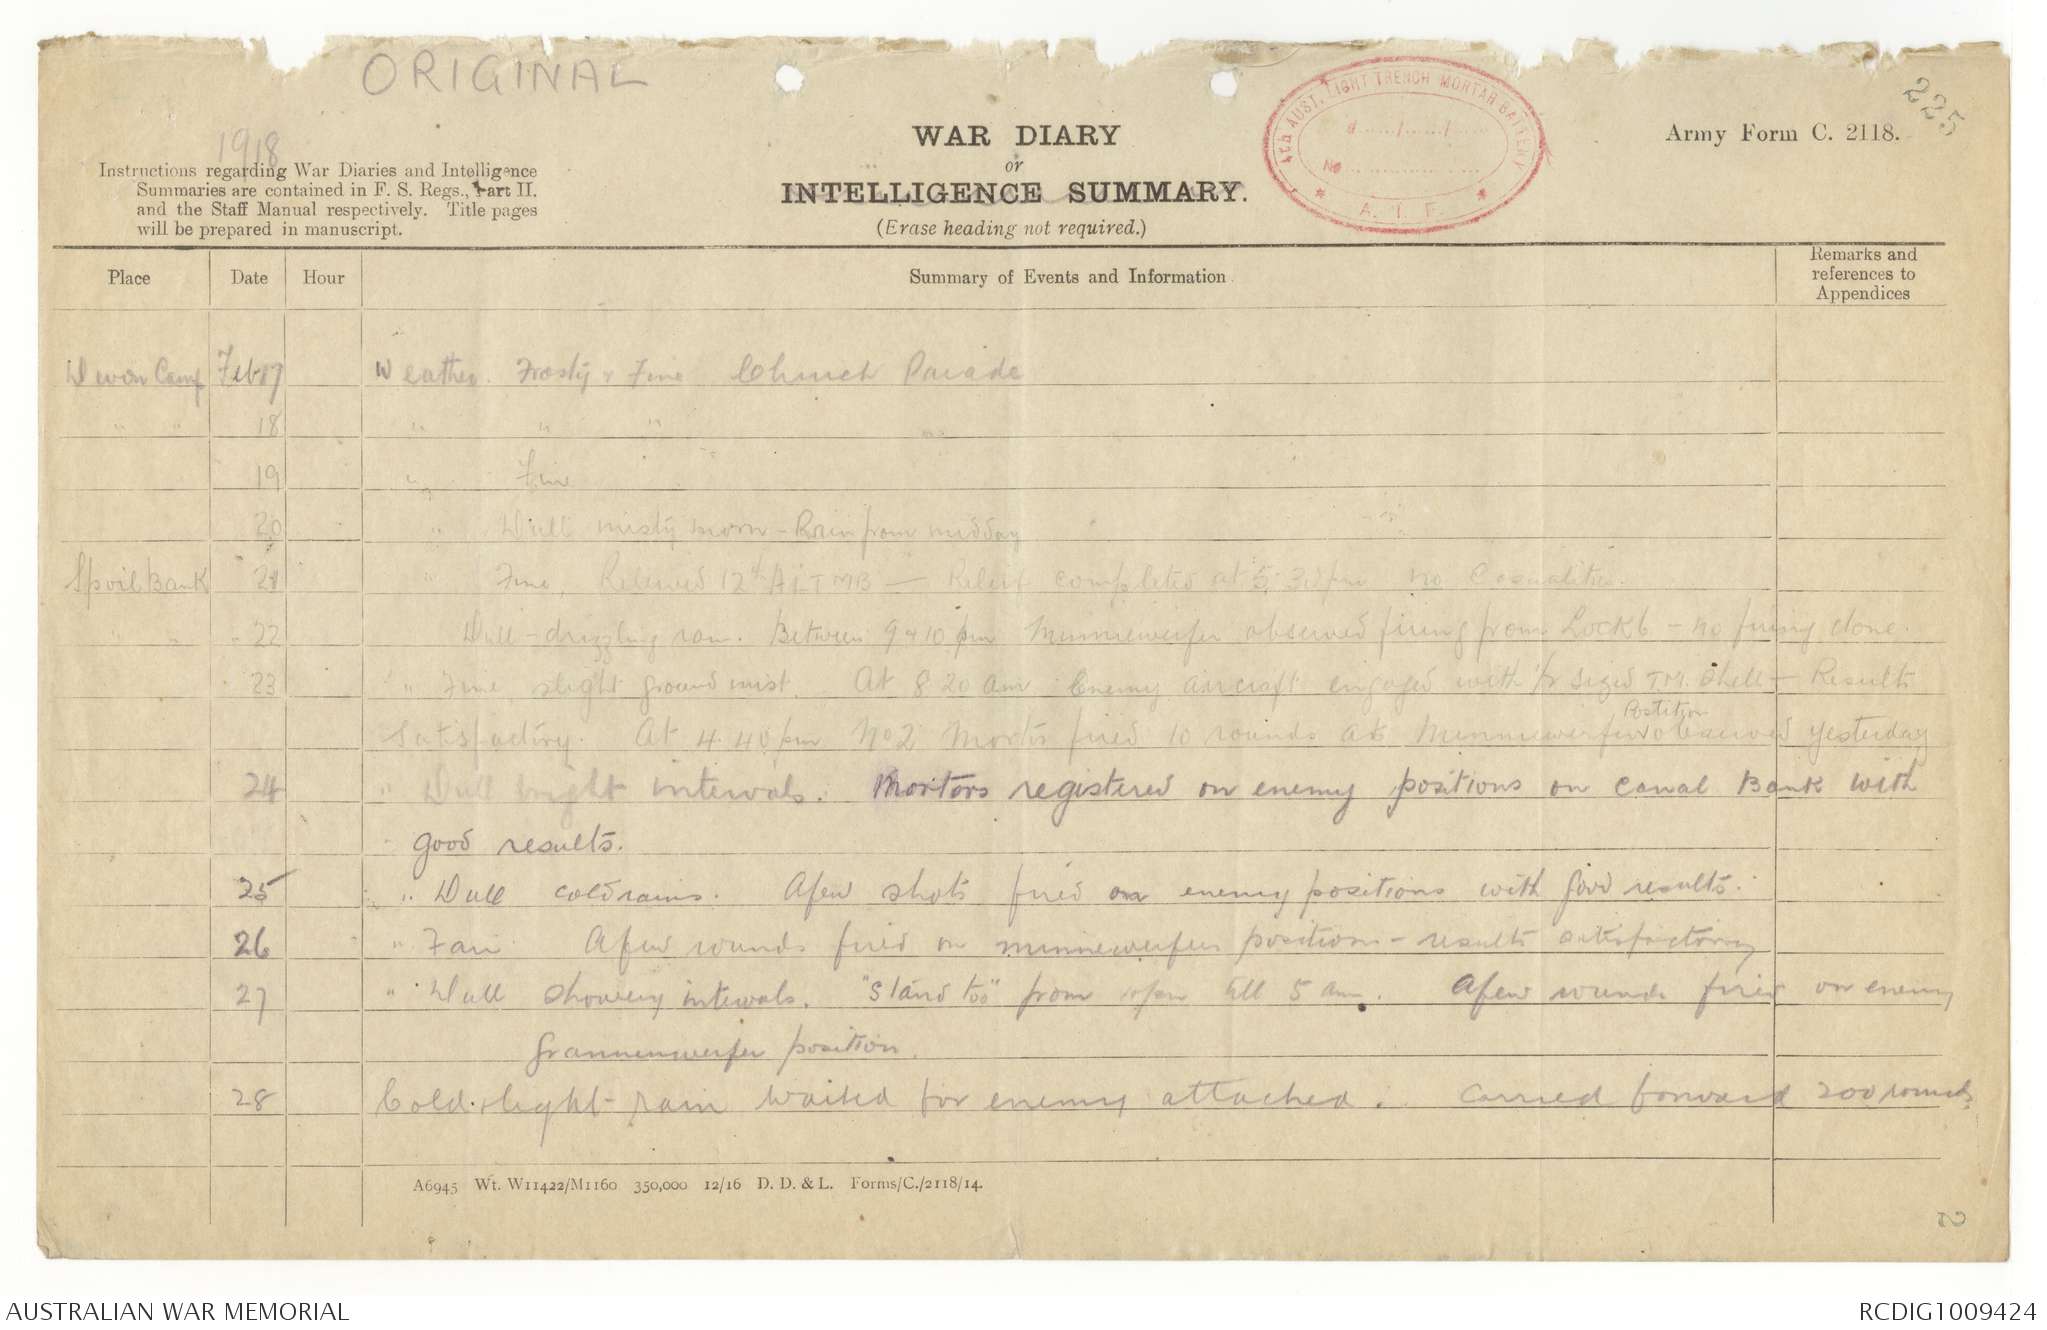 ORIGINAL
225
1918
WAR DIARY
or
INTELLIGENCE SUMMARY.
(Erase heading not required.)
Army Form C. 2118.
Instructions regarding War Diaries and Intelligence
Summaries are contained in F. S. Regs., Part II.
and the Staff Manual respectively. Title pages
will be prepared in manuscript.
4th AUST. LIGHT TRENCH MORTAR BATTERY
No
A. I. F.
Place Date Hour Summary of Events and Information Remarks and references to Appendices
Devon Camp Feb 17 Weather. Frosty & Fine Church Parade
" " 18 " " "
19 " Fine
20 " Dull misty morn - Rain from midday
Spoil Bank 21 " Fine, Relieved 12th ALTMB — Relief completed at 5.30pm no Casualties.
" " 22 Dull - drizzling rain. Between 9 & 10 pm Minniewerfer observed firing from Lock 6 - no firing done.
23 " Fine slight ground mist. At 8.20 am Enemy aircraft engaged with T.M. Shell - Results
satisfactory. At 4.40 pm No 2 Mortar fired 10 rounds at Minniewerfer Postition observed yesterday
24 " Dull bright intervals. Mortors registered on enemy positions on Canal Bank with
good results.
25 " Dull cold rains. A few shots fired on enemy positions with good results.
26 " Fair A few rounds fired on minniewerfer positions - results satisfactory
27 " Dull showery intervals. "Stand too" from till 5 am. A few rounds fired on enemy
grannenwerfer position.
28 Cold. slight rain waited for enemy attached. Carried forward 200 rounds
A6945 Wt. W11422/M1160 350,000 12/16 D. D. & L. Forms/C./2118/14.
AUSTRALIAN WAR MEMORIAL
RCDIG1009424